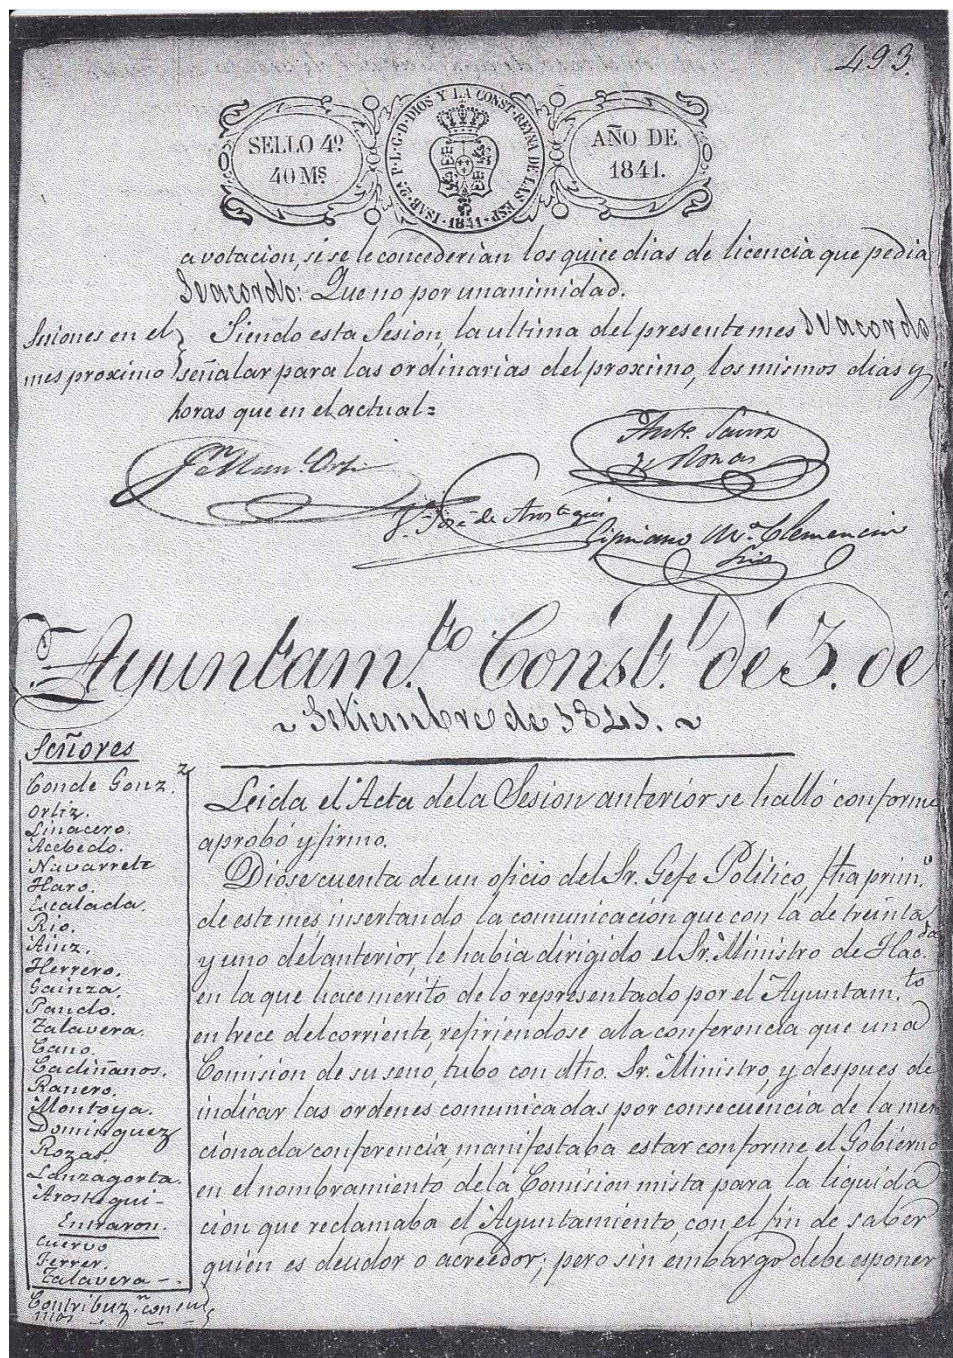 493.
SELLO 4º
40 Ms
ISAB. 2ª P. L. G. D. DIOS Y LA CONST. REYNA DE LAS ESP. 1841
AÑO DE
1841.
a votacion, si se le concederian los quice dias de licencia que pedia
Se acordo: Que no por unanimidad.
Sesiones en el
mes proximo
Siendo esta Sesion, la ultima del presente mes Se acordo
señalar para las ordinarias del proximo, los mismos dias y
horas que en el actual=
Jn Man.l Ortiz
Ante. Sainz
de Rozas
José de Arostegui
Cipriano Mª Clemencin
Srio
Ayuntam.to Const.l de 3. de
~ Setiembre de 1841. ~
Señores
Conde Gonz.z
Ortiz.
Linacero.
Acebedo.
Navarrete
Haro.
Escalada.
Rio.
Ainz.
Herrero.
Gainza.
Pando.
Talavera.
Cano.
Cadiñanos.
Ranero.
Montoya.
Dominguez
Rozas.
Lanzagorta.
Arostegui-
Entraron.
Cuervo
Ferrer.
Talavera-.
Contribuz.n con su
mos
Leida el Acta de la Sesion anterior se halló conforme
aprobó y firmo.
Diose cuenta de un oficio del Sr. Gefe Politico, fha prim.o
de este mes insertando la comunicación que con la de treinta
y uno del anterior, le habia dirigido el Sr. Ministro de Hac.da
en la que hace merito de lo representado por el Ayuntam.to
en trece del corriente, refiriendose a la conferencia que una
Comision de su seno, tubo con dho. Sr. Ministro, y despues de
indicar las ordenes comunicadas por consecuencia de la men
cionada conferencia, manifestaba estar conforme el Gobierno
en el nombramiento de la Comision mista para la liquida
cion que reclamaba el Ayuntamiento, con el fin de saber
quién es deudor o acreedor; pero sin embargo debe esponer